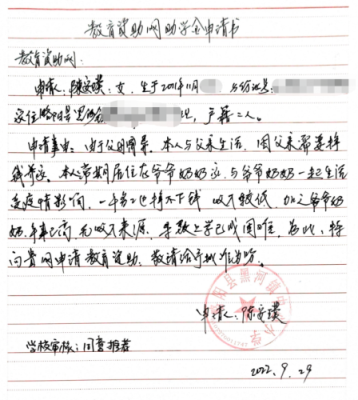 教育资助网助学金申请书
教育资助网:
申请人:陈 ,女,生于2011年11月 身份证号:
家住略阳县黑河 组,户籍二人。
申请事由:由于父母离异,本人与父亲生活,因父亲需要挣
钱养家,本人常期居住在爷爷奶奶家,与爷爷奶奶一起生活
受疫情影响,一年四也挣不下钱 收入较低,加之爷爷奶
奶年事已高,无收入来源,导致上学已成困难,为此,特
向贵网申请教育资助,敬请给予批准为盼。
申请人:陈
学校审核:同意推荐
2022.9.29
略阳县黑河镇中心小学